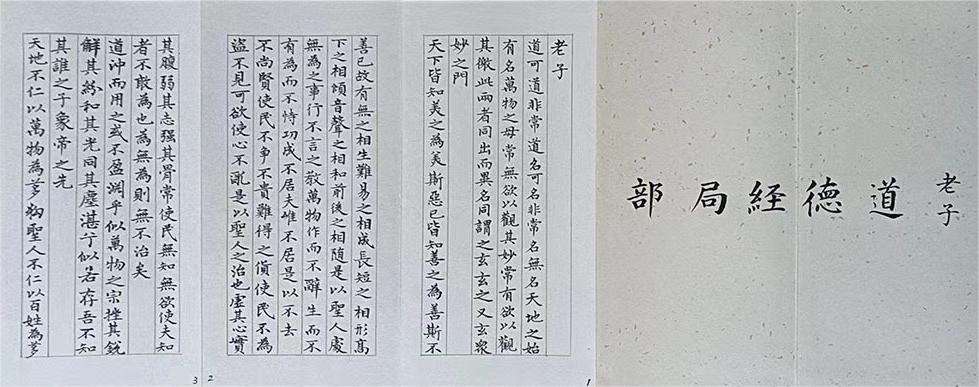 老子
道德経局部
老子
道可道非常道名可名非常名無名天地之始
有名萬物之母常無欲以觀其妙常有欲以觀
其徼此兩者同出而異名同謂之玄玄之又玄衆
妙之門
天下皆知美之為美斯惡已皆知善之為善斯不
1
善已故有無之相生難易之相成長短之相形髙
下之相傾音聲之相和前後之相隨是以聖人處
無為之事行不言之教萬物作而不辭生而不
有為而不恃功成不居夫唯不居是以不去
不尚賢使民不争不貴難得之貨使民不為
盜不見可欲使心不亂是以聖人之治也虛其心實
2
其腹弱其志强其骨常使民無知無欲使夫知
者不敢為也為無為則無不治矣
道沖而用之或不盈淵乎似萬物之宗挫其銳
解其紛和其光同其塵湛兮似若存吾不知
其誰之子象帝之先
天地不仁以萬物為芻狗聖人不仁以百姓為芻
3